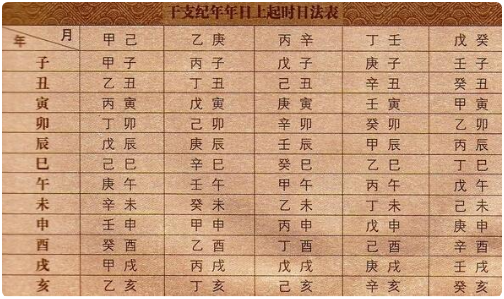 干支纪年年日上起时日法表
年 月 甲己 乙庚 丙辛 丁壬 戊癸
子 甲子 丙子 戊子 庚子 壬子
丑 乙丑 丁丑 己丑 辛丑 癸丑
寅 丙寅 戊寅 庚寅 壬寅 甲寅
卯 丁卯 己卯 辛卯 癸卯 乙卯
辰 戊辰 庚辰 壬辰 甲辰 丙辰
巳 己巳 辛巳 癸巳 乙巳 丁巳
午 庚午 壬午 甲午 丙午 戊午
未 辛未 癸未 乙未 丁未 己未
申 壬申 甲申 丙申 戊申 庚申
酉 癸酉 乙酉 丁酉 己酉 辛酉
戌 甲戌 丙戌 戊戌 庚戌 壬戌
亥 乙亥 丁亥 己亥 辛亥 癸亥